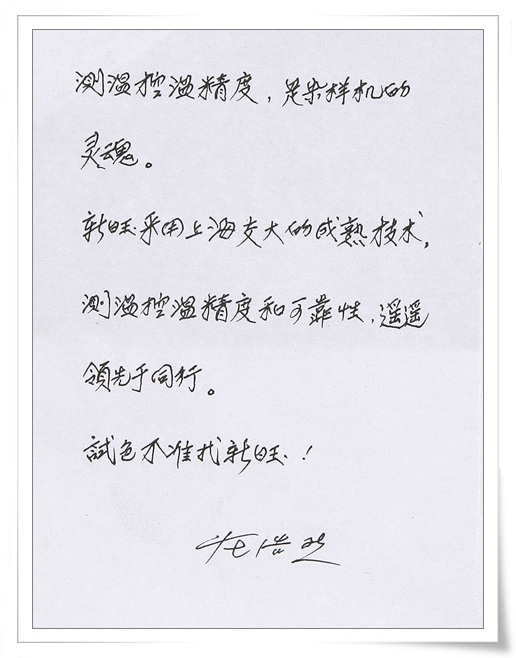 测温控温精度，是染样机的
灵魂。
新旺采用上海交大的成熟技术，
测温控温精度和可靠性，遥遥
領先于同行。
試色不准找新旺！